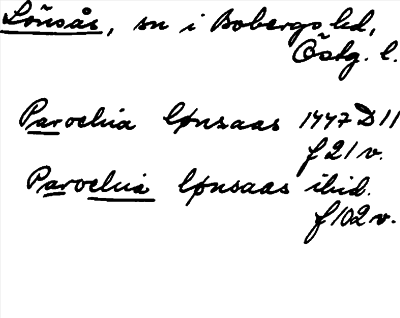 Lönsås, sn i Bobergs hd,
Östg. l.
Parochia lønsaas 1447 D 11
f 21 v.
Parochia lønsaas ibid.
f 102 v.